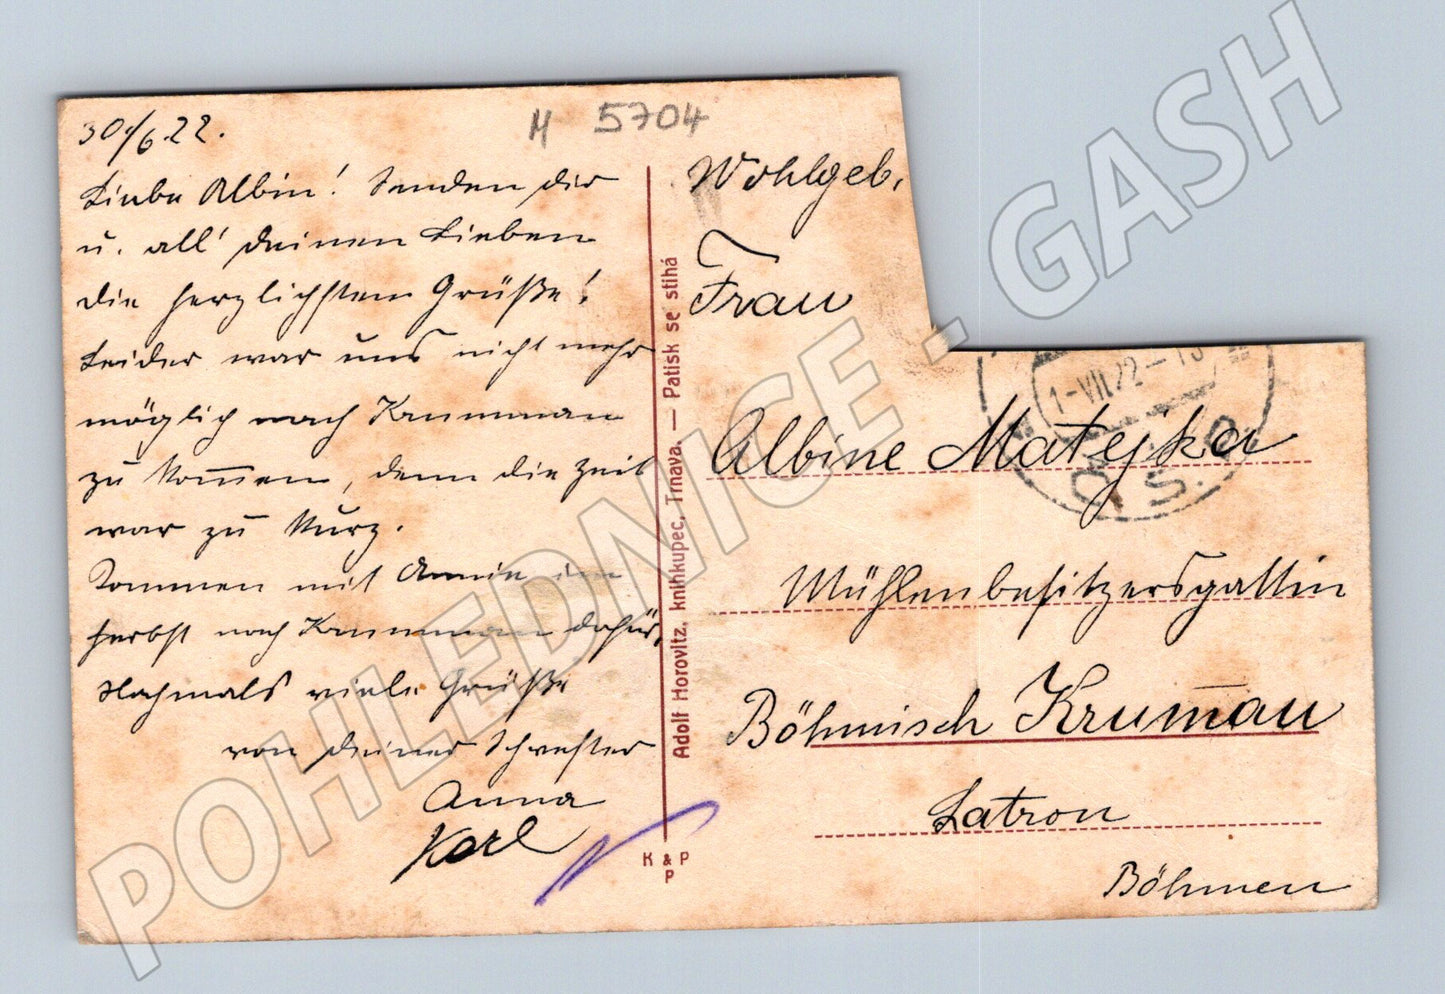 30./6.22.
M 5704
Liebe Albin! Senden dir
u. all' deinen Lieben
die herzlichsten Grüße!
Leider war uns nicht mehr
möglich nach Krummau
zu kom̄en, denn die Zeit
war zu kurz.
Kommen mit Annie im
Herbst nach Krummau dafür.
Nochmals viele Grüße
von deiner Schwester
Anna
Karl
Adolf Horovitz, knihkupec, Trnava. — Patisk se stihá
K & P
P
Wohlgeb.
Frau
Albine Matejka
Mühlenbesitzersgattin
Böhmisch Krum̄au
Latron
Böhmen
1-VII 22-13
POHLEDNICE - GASH